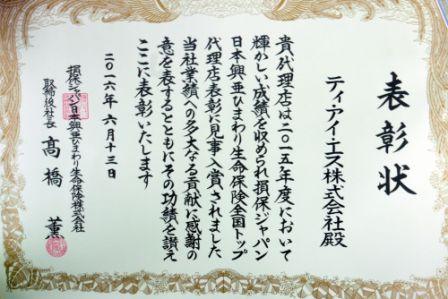 表彰状
ティ・アイ・エス株式会社殿
貴代理店は二〇一五年度において
輝かしい成績を収められ損保ジャパン
日本興亜ひまわり生命保険全国トップ
代理店表彰に見事入賞されました
当社業績への多大なる貢献に感謝の
意を表するとともにその功績を讃え
ここに表彰いたします
二〇一六年六月十三日
損保ジャパン日本興亜ひまわり生命保険株式会社
取締役社長 髙橋薫